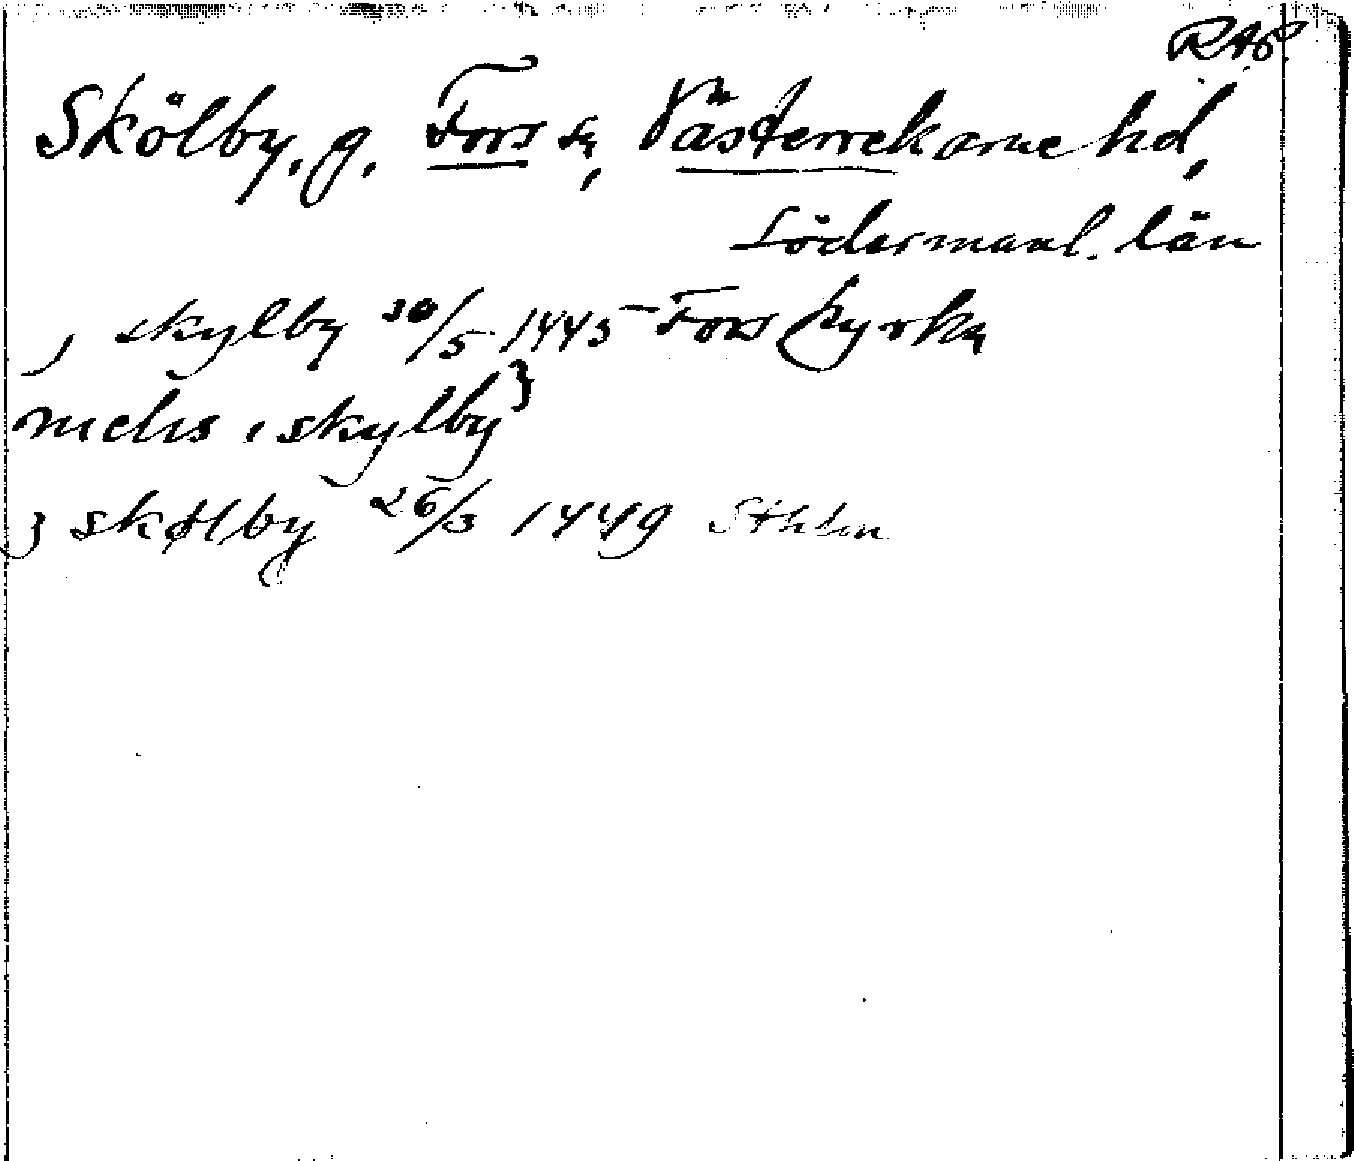 RAp.
Skölby, g. Fors sn, Västerrekarne hd,
Södermanl. län
j skylby 30/5 1445 Fors kyrka
niclis i skylby }
j skølby 26/3 1449 Sthlm